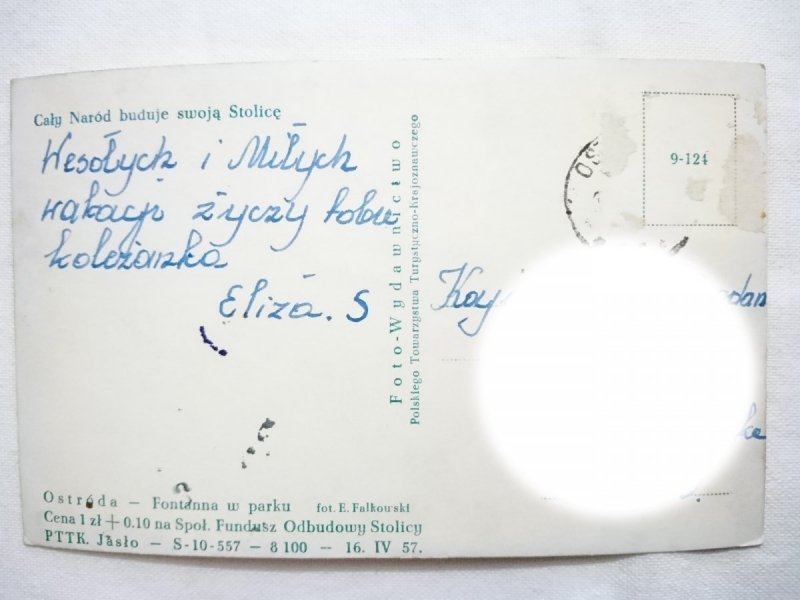 Cały Naród buduje swoją Stolicę
Wesołych i Miłych
wakacji życzy tobie
koleżanka
Eliza. S
Foto-Wydawnictwo
Polskiego Towarzystwa Turystyczno-krajoznawczego
9-124
OS
Ostróda — Fontanna w parku fot. E. Falkowski
Cena 1 zł + 0.10 na Społ. Fundusz Odbudowy Stolicy
PTTK. Jasło — S-10-557 — 8 100 — 16. IV 57.